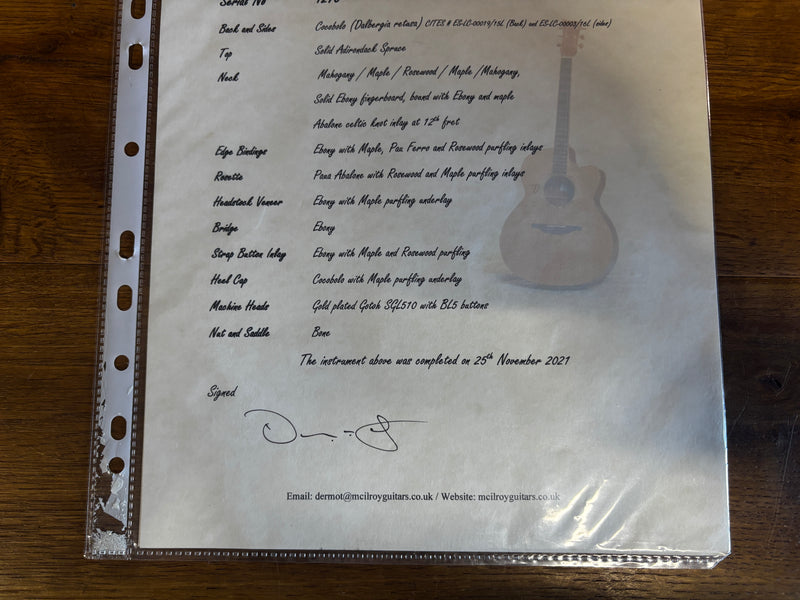 Serial No
Back and Sides Cocobolo (Dalbergia retusa) CITES # ES-LC-00019/15L (Back) and ES-LC-00003/16L (sides)
Top Solid Adirondack Spruce
Neck Mahogany / Maple / Rosewood / Maple /Mahogany,
Solid Ebony fingerboard, bound with Ebony and maple
Abalone celtic knot inlay at 12th fret
Edge Bindings Ebony with Maple, Pau Ferro and Rosewood purfling inlays
Rosette Paua Abalone with Rosewood and Maple purfling inlays
Headstock Veneer Ebony with Maple purfling underlay
Bridge Ebony
Strap Button Inlay Ebony with Maple and Rosewood purfling
Heel Cap Cocobolo with Maple purfling underlay
Machine Heads Gold plated Gotoh SGL510 with BL5 buttons
Nut and Saddle Bone
The instrument above was completed on 25th November 2021
Signed
Email: dermot@mcilroyguitars.co.uk / Website: mcilroyguitars.co.uk